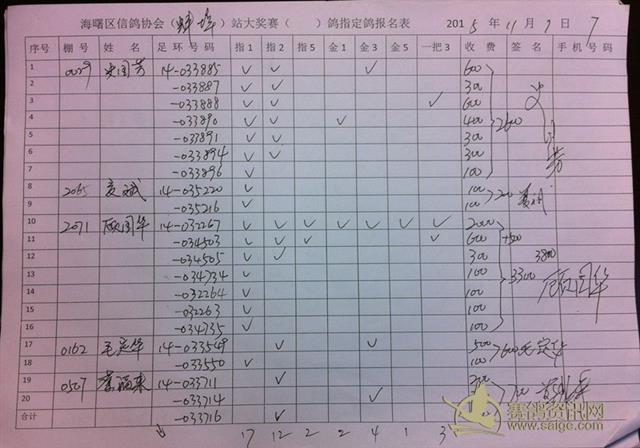 海曙区信鸽协会（蚌埠）站大奖赛（ ）鸽指定鸽报名表 2015年11月7日 7
序号 棚号 姓名 足环号码 指1 指2 指5 金1 金2 金5 一把3 收费 签名 手机号码
1 0029 史国芳 14-033885 ✓ ✓ ✓ 600
2 -033887 ✓ ✓ 300
3 -033888 ✓ ✓ ✓ 600
4 -033890 ✓ ✓ ✓ 400 2600
5 -033891 ✓ ✓ 300
6 -033894 ✓ ✓ 300
7 -033896 ✓ 100
8 2065 14-035220 ✓ 100
9 -035216 ✓ 100 200
10 2071 顾国华 14-032267 ✓ ✓ ✓ ✓ ✓ ✓ ✓ 2000
11 -034503 ✓ ✓ ✓ ✓ 600 +500
12 -034505 ✓ ✓ 300 3800
13 -034734 ✓ 100 3300 顾国华
14 -032264 ✓ 100
15 -032263 ✓ 100
16 -034735 ✓ 100
17 0162 毛定华 14-033549 ✓ ✓ 500 600 毛定华
18 -033550 ✓ 100
19 0507 14-033711 ✓ 700
20 -033714 ✓
合计 -033716 ✓
17 12 2 2 4 1 3
赛鸽资讯网
www.saige.com